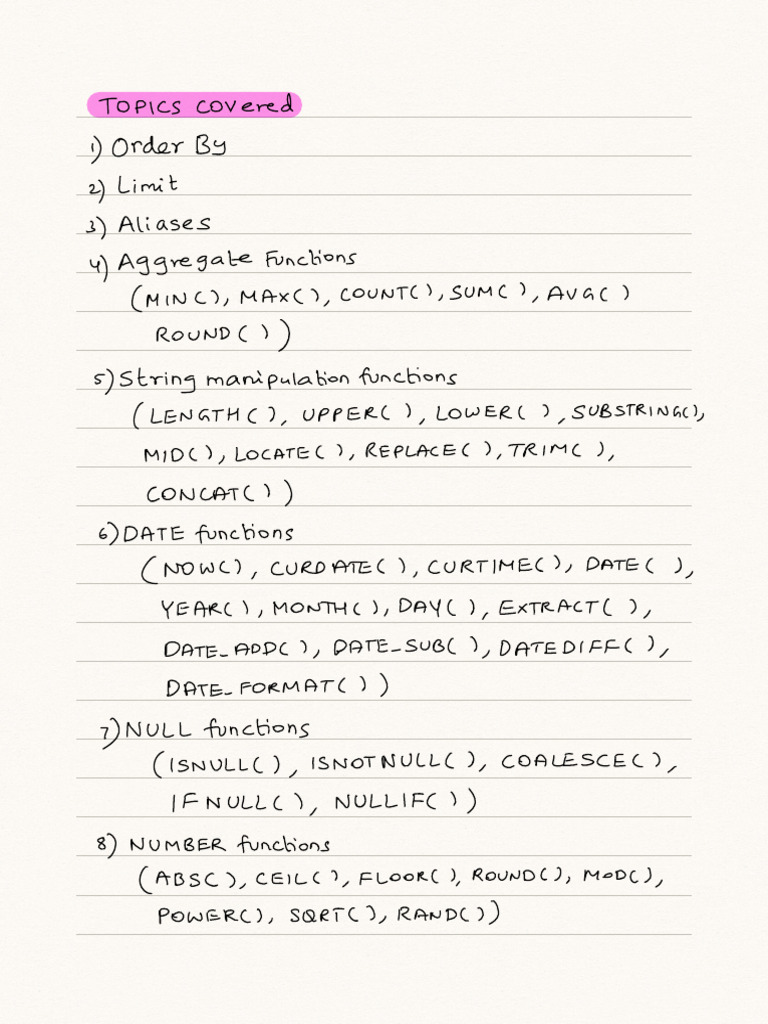 TOPICS covered
1) Order By
2) Limit
3) Aliases
4) Aggregate Functions
(MIN(), MAX(), COUNT(), SUM(), AVG()
ROUND())
5) String manipulation functions
(LENGTH(), UPPER(), LOWER(), SUBSTRING(),
MID(), LOCATE(), REPLACE(), TRIM(),
CONCAT())
6) DATE functions
(NOW(), CURDATE(), CURTIME(), DATE(),
YEAR(), MONTH(), DAY(), EXTRACT(),
DATE_ADD(), DATE_SUB(), DATEDIFF(),
DATE_FORMAT())
7) NULL functions
(ISNULL(), ISNOTNULL(), COALESCE(),
IFNULL(), NULLIF())
8) NUMBER functions
(ABS(), CEIL(), FLOOR(), ROUND(), MOD(),
POWER(), SQRT(), RAND())